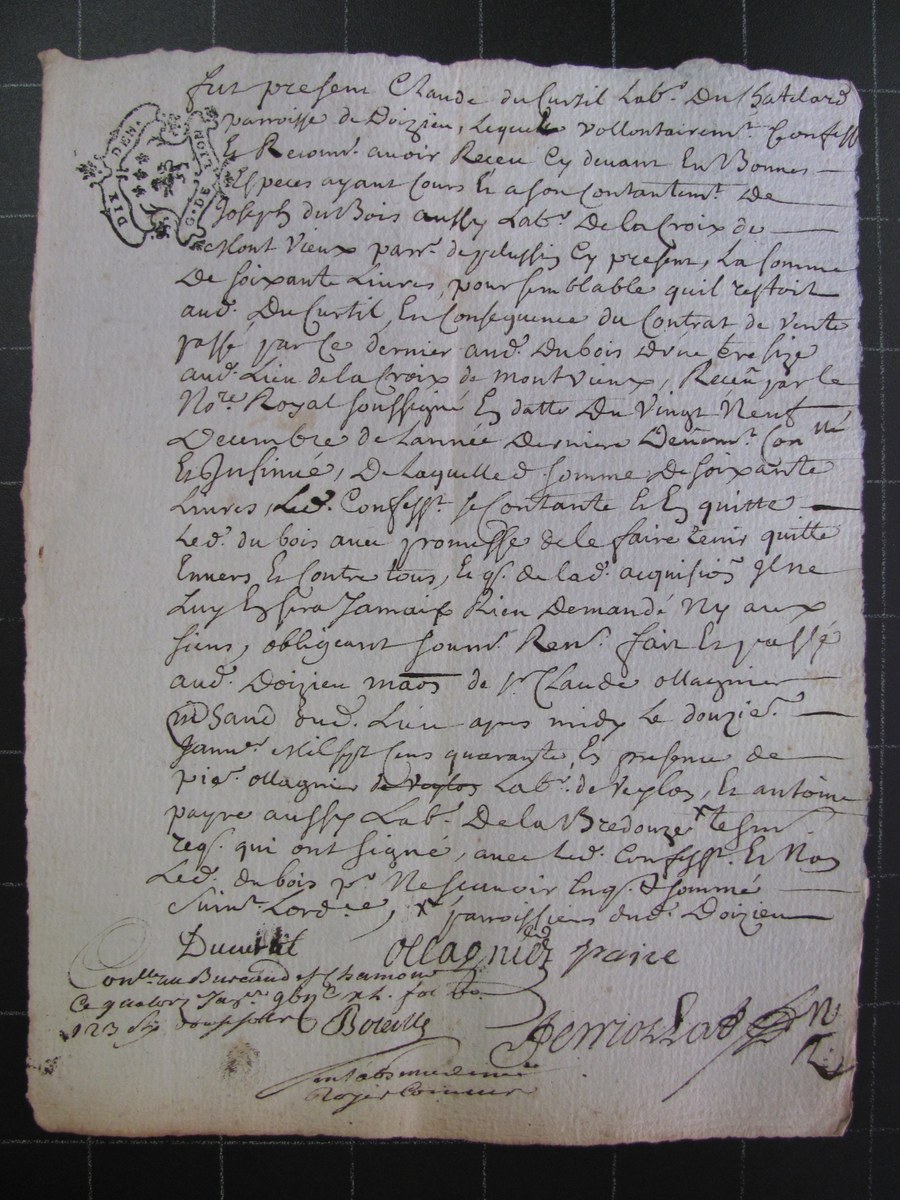 DIX DEN.
G. DE LION
fut present Claude du Curtil Lab.r Du Chatelard
parroisse de Doizieu, lequel vollontairem.t Confesse
Et Reconn.t avoir Receu Cy devant En Bonnes
Especes ayant Cours Et a son Contantem.t De
Joseph du Bois aussy Lab.r De la Croix de
Mont Vieux parr.e de pelussin Cy present, La somme
De soixante Livres, pour semblable quil restoit
aud. Du Curtil, En Consequence du Contrat de vente
passé par Ce dernier aud. Dubois Dune terre size
aud. Lieu de la Croix de montvieux, Receu par le
No.re Royal soussigné En datte Du Vingt Neuf
Decembre de Lannée Derniere Deuem.t Con.llé
Et Insinué, De Laquelle d. somme De soixante
Livres, Led. Confess.t se Contante Et En quitte
Led. du bois avec promesse de le faire tenir quitte
Envers Et Contre tous, Et q. de lad. acquision Il ne
Luy En sera Jamaix Rien Demandé Ny aux
siens, obligeant soum.t Ren.t fait Et passé
aud. Doizieu maon de s.r Claude ollagnier
m.d aud. Lieu apres midy Le douzie.e
Janv.r Mil sept Cens quarante, En presence de
pie.e ollagnier de veylos Lab.r de Veylos, Et antoine
payre aussy Lab.r De la Bredouze tesm
req. qui ont signé, avec Led. Confess.t Et Non
Led. du bois p.r Ne scavoir Enq. & sommé
Suiv.t Lord.ce, x parroissiens dud. Doizieu
Ducurtil ollagnier paire
Con.llé au Bureau de st Chamond
Ce quatorz. Janv.r
R.